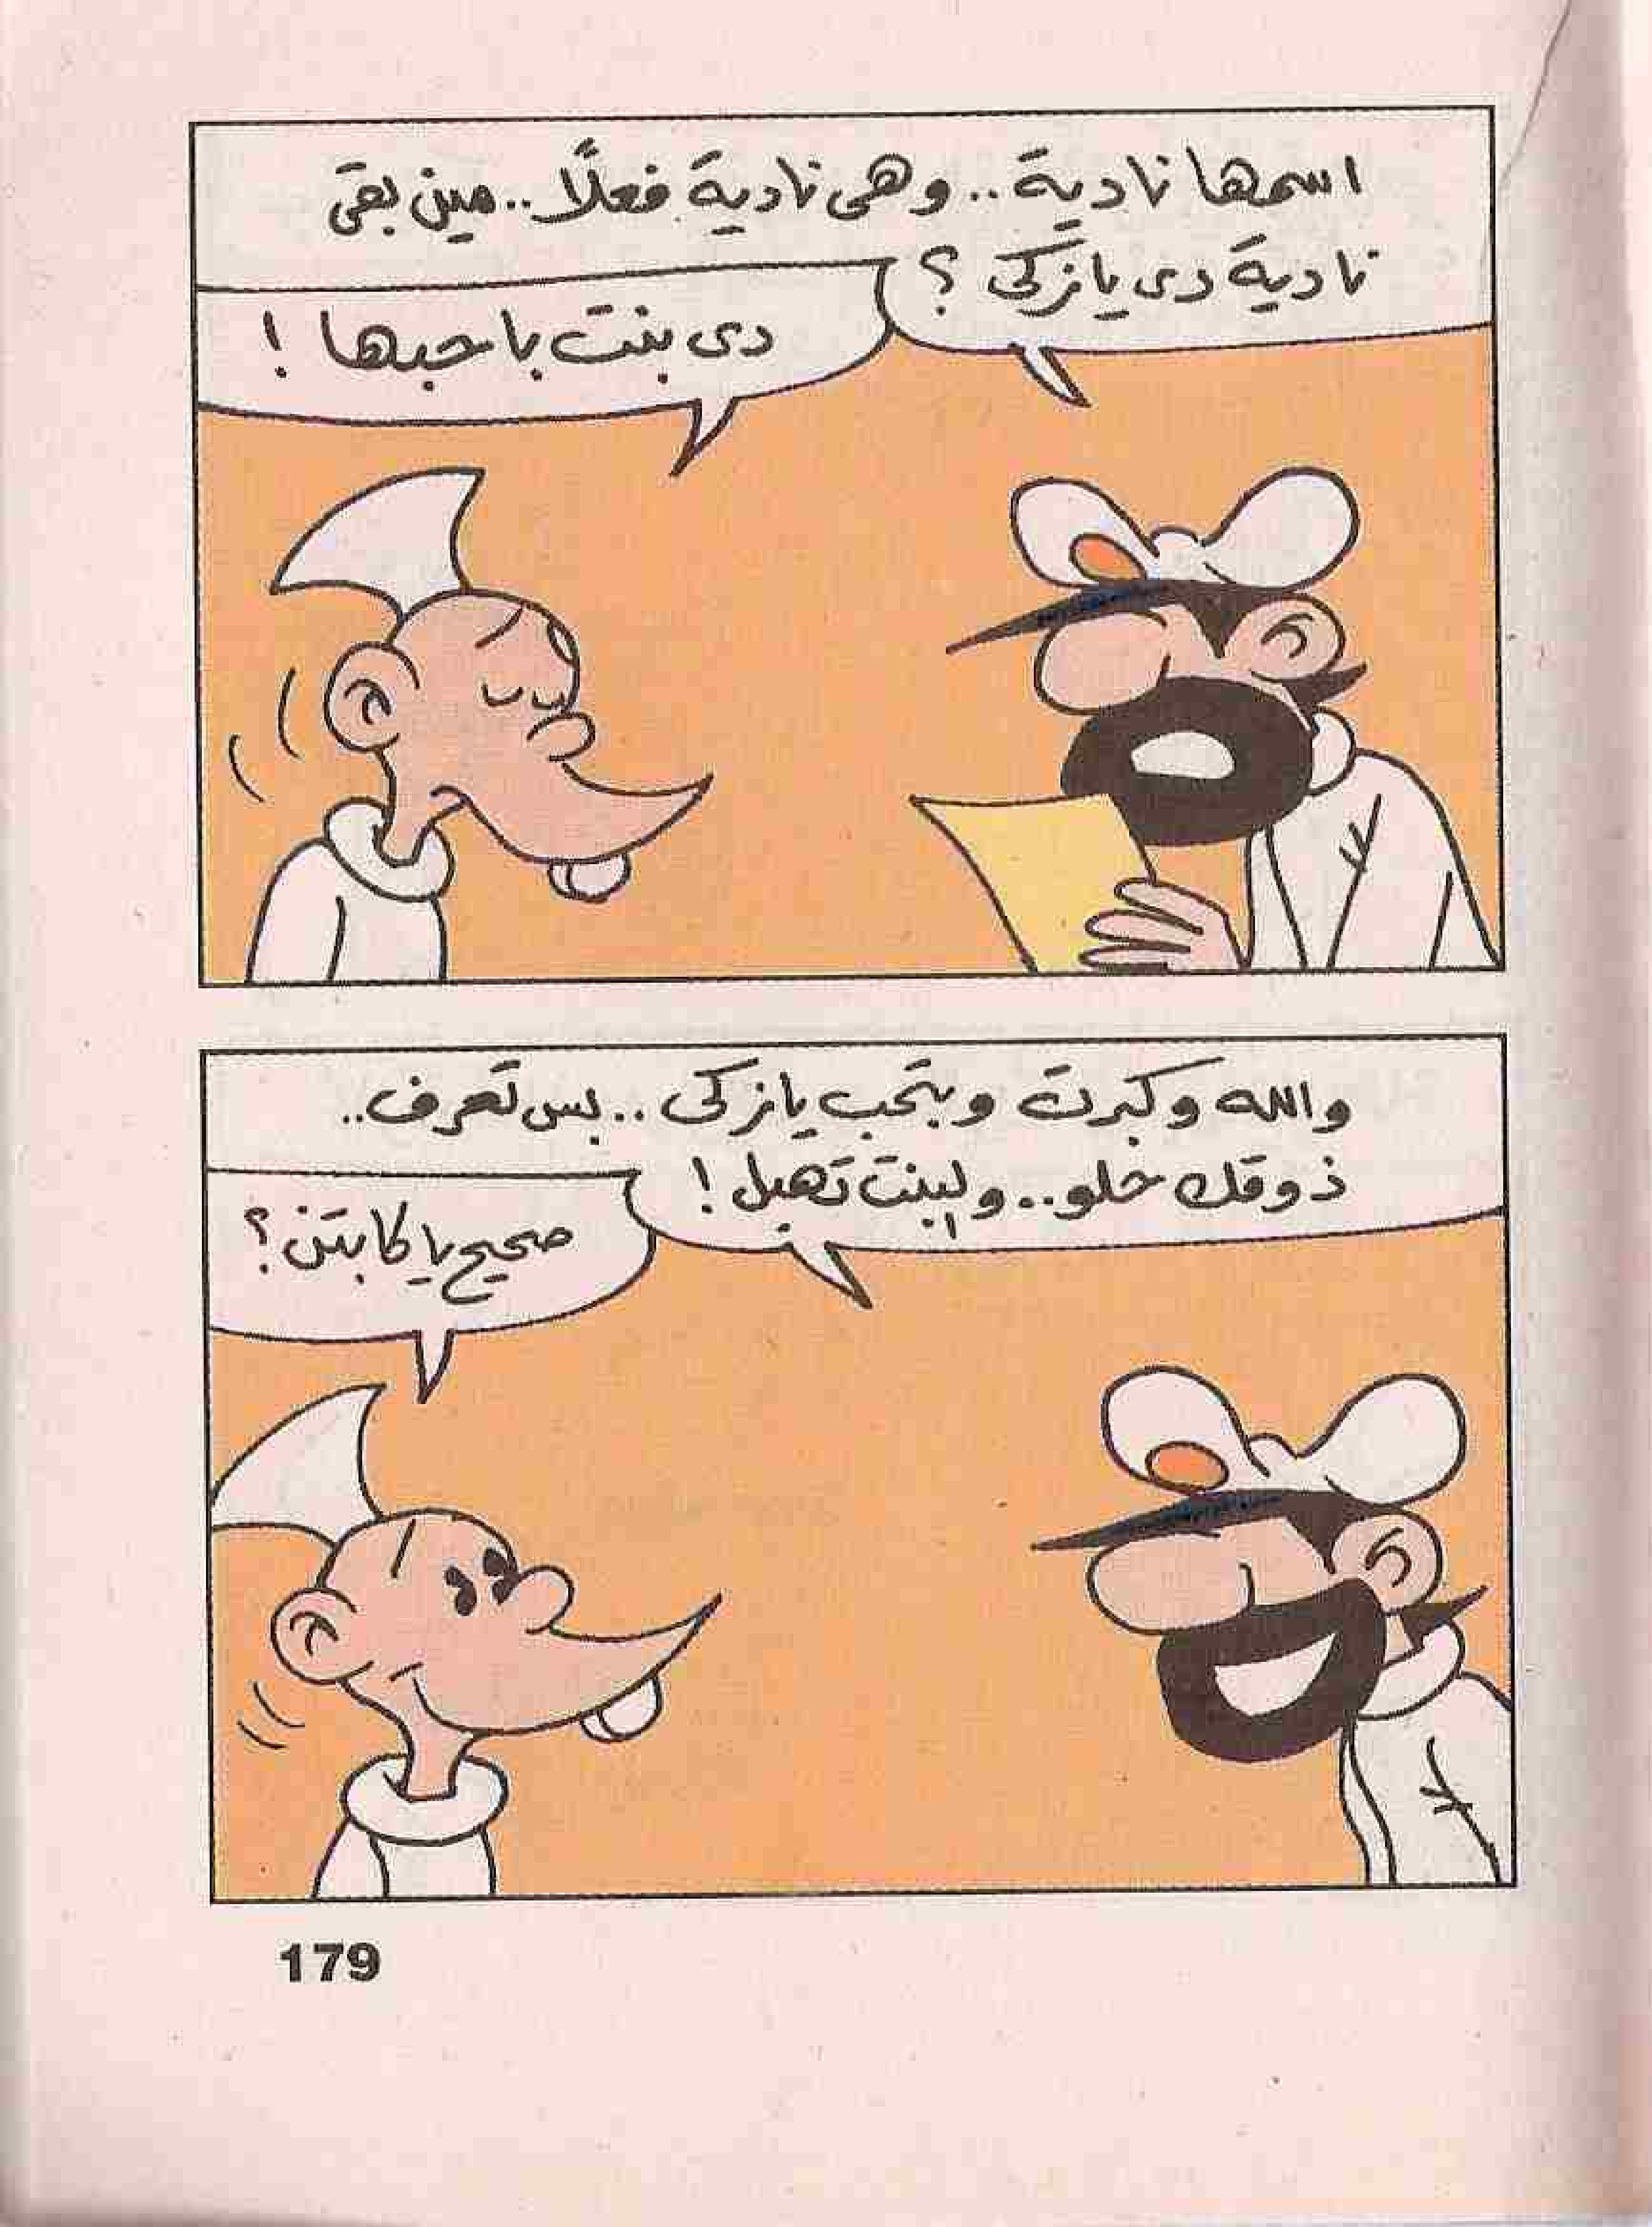 اسمها نادية.. وهى نادية فعلاً.. مين بقى
نادية دى يا زكى ؟
دى بنت باحبها !
والله وكبرت وبتحب يا زكى .. بس تعرف..
ذوقك حلو.. والبنت تهبل !
صحيح يا كابتن ؟
179